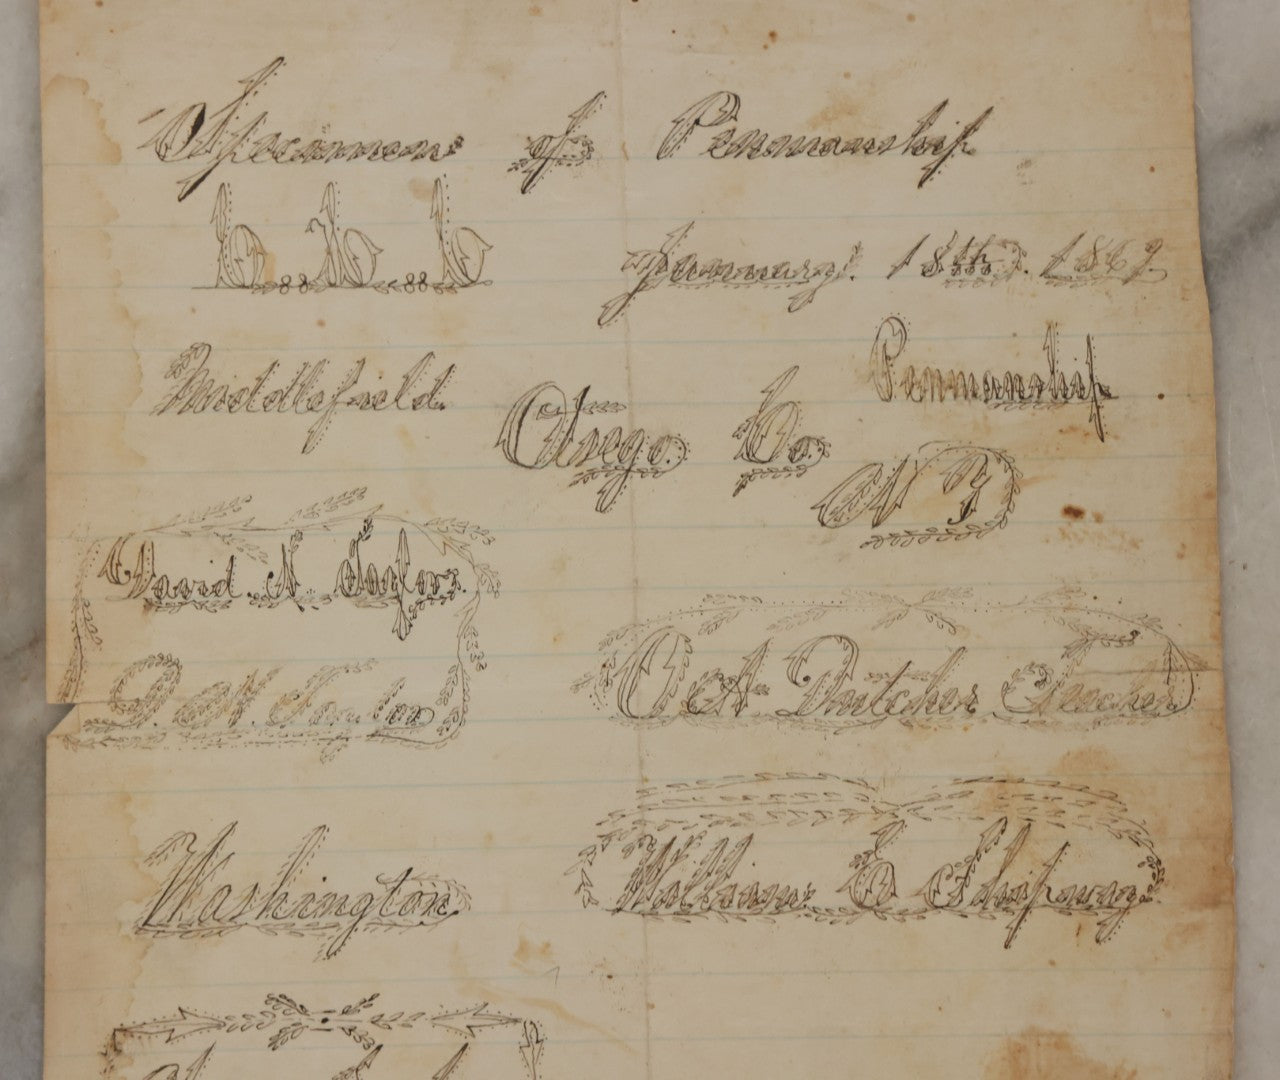 Specimens of Penmanship
January. 18th. 1867.
Middlefield.
Penmanship
Otsego. Co.
N Y
David. N. Taylor.
O A Dutcher Teacher
D. N. Taylor
William. E Shipway.
Washington